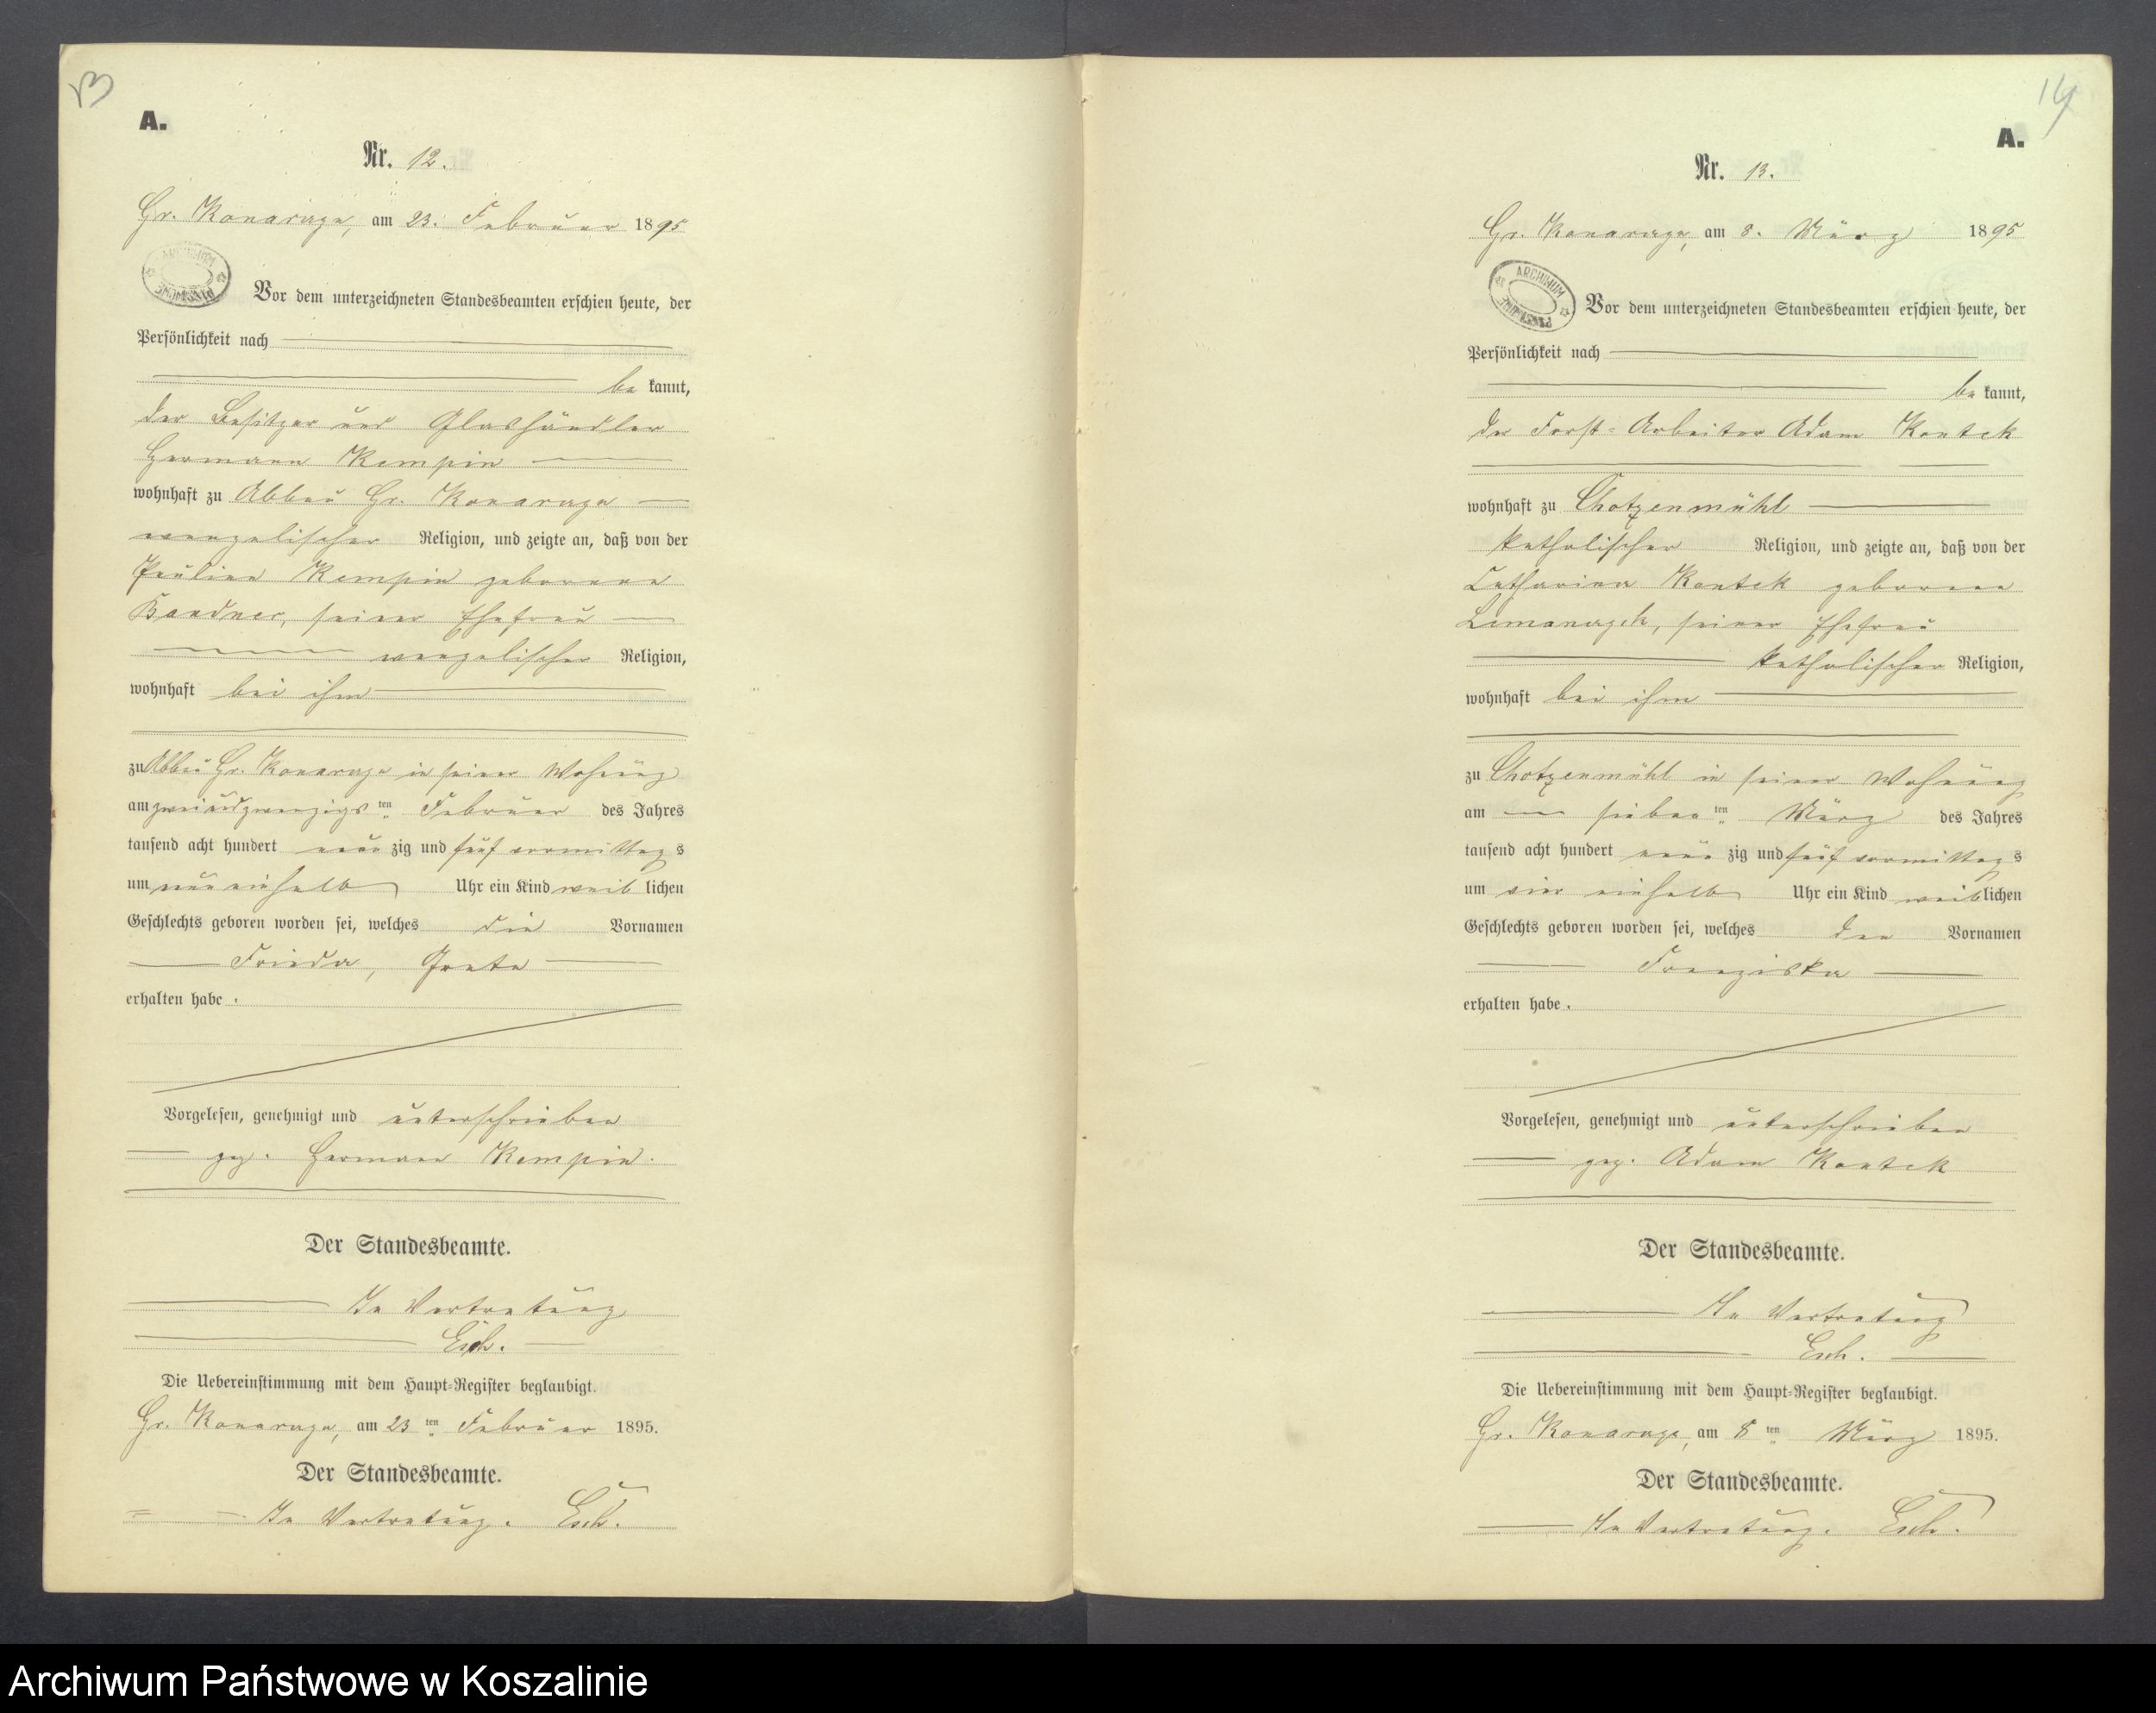 13
A.
Nr. 12.
Gr. Konarage, am 23. Februar 1895
ARCHIWUM PAŃSTWOWE
Vor dem unterzeichneten Standesbeamten erschien heute, der
Persönlichkeit nach
be kannt,
der Besitzer und Glashändler
Hermann Kempin
wohnhaft zu Abbau Gr. Konarage
evangelischer Religion, und zeigte an, daß von der
Pauline Kempin geborene
seiner Ehefrau
evangelischer Religion,
wohnhaft bei ihm
zu Abbau Gr. Konarage in seiner Wohnung
am zweiundzwanzigsten Februar des Jahres
tausend acht hundert neun zig und fünf vormittag s
um neun einhalb Uhr ein Kind weib lichen
Geschlechts geboren worden sei, welches die Vornamen
Frieda, Grete
erhalten habe.
Vorgelesen, genehmigt und unterschrieben
gez. Hermann Kempin.
Der Standesbeamte.
In Vertretung
Esch.
Die Uebereinstimmung mit dem Haupt-Register beglaubigt.
Gr. Konarage, am 23 ten Februar 1895.
Der Standesbeamte.
In Vertretung. Esch.
14
A.
Nr. 13.
Gr. Konarage, am 8. März 1895
ARCHIWUM PAŃSTWOWE
Vor dem unterzeichneten Standesbeamten erschien heute, der
Persönlichkeit nach
be kannt,
der Forst-Arbeiter Adam Kontek
wohnhaft zu Chotzenmühl
katholischer Religion, und zeigte an, daß von der
Catharina Kontek geborene
seiner Ehefrau
katholischer Religion,
wohnhaft bei ihm
zu Chotzenmühl in seiner Wohnung
am sieben ten März des Jahres
tausend acht hundert neun zig und fünf vormittag s
um vier einhalb Uhr ein Kind weib lichen
Geschlechts geboren worden sei, welches den Vornamen
Franziska
erhalten habe.
Vorgelesen, genehmigt und unterschrieben
gez. Adam Kontek
Der Standesbeamte.
In Vertretung
Esch.
Die Uebereinstimmung mit dem Haupt-Register beglaubigt.
Gr. Konarage, am 8 ten März 1895.
Der Standesbeamte.
In Vertretung. Esch.
Archiwum Państwowe w Koszalinie